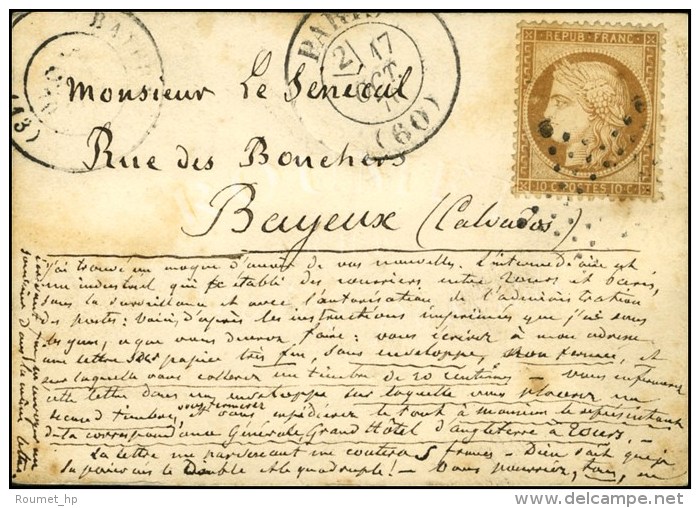 BAYEUX
(13)
PARIS
2 17 OCT. 70
(60)
REPUB. FRANC.
10 C. POSTES 10 C.
Monsieur Le Sénécal
Rue des Bouchers
Bayeux (Calvados)
J'ai trouvé un moyen d'avoir de vos nouvelles. L'intermédiaire est
un industriel qui a établi des courriers entre Tours et Paris,
sous la surveillance et avec l'autorisation de l'administration
des postes: Voici, d'après les instructions imprimées que j'ai sous
les yeux, ce que vous devrez faire: vous écrirez à mon adresse
une lettre sur papier très fin, sans enveloppe, non fermée, et
sur laquelle vous collerez un timbre de 20 centimes — vous enfermerez
cette lettre dans une enveloppe sur laquelle vous placerez un
second timbre, vous expédierez le tout à monsieur le représentant
de la correspondance Générale, Grand Hôtel d'Angleterre à Tours. —
La lettre me parvenant me coûtera 5 francs — Dieu sait que je
la paierais le double et le quadruple! — Vous pourriez, tous, en
semaine dans la même lettre.
Roumet_hp
delcampe.net